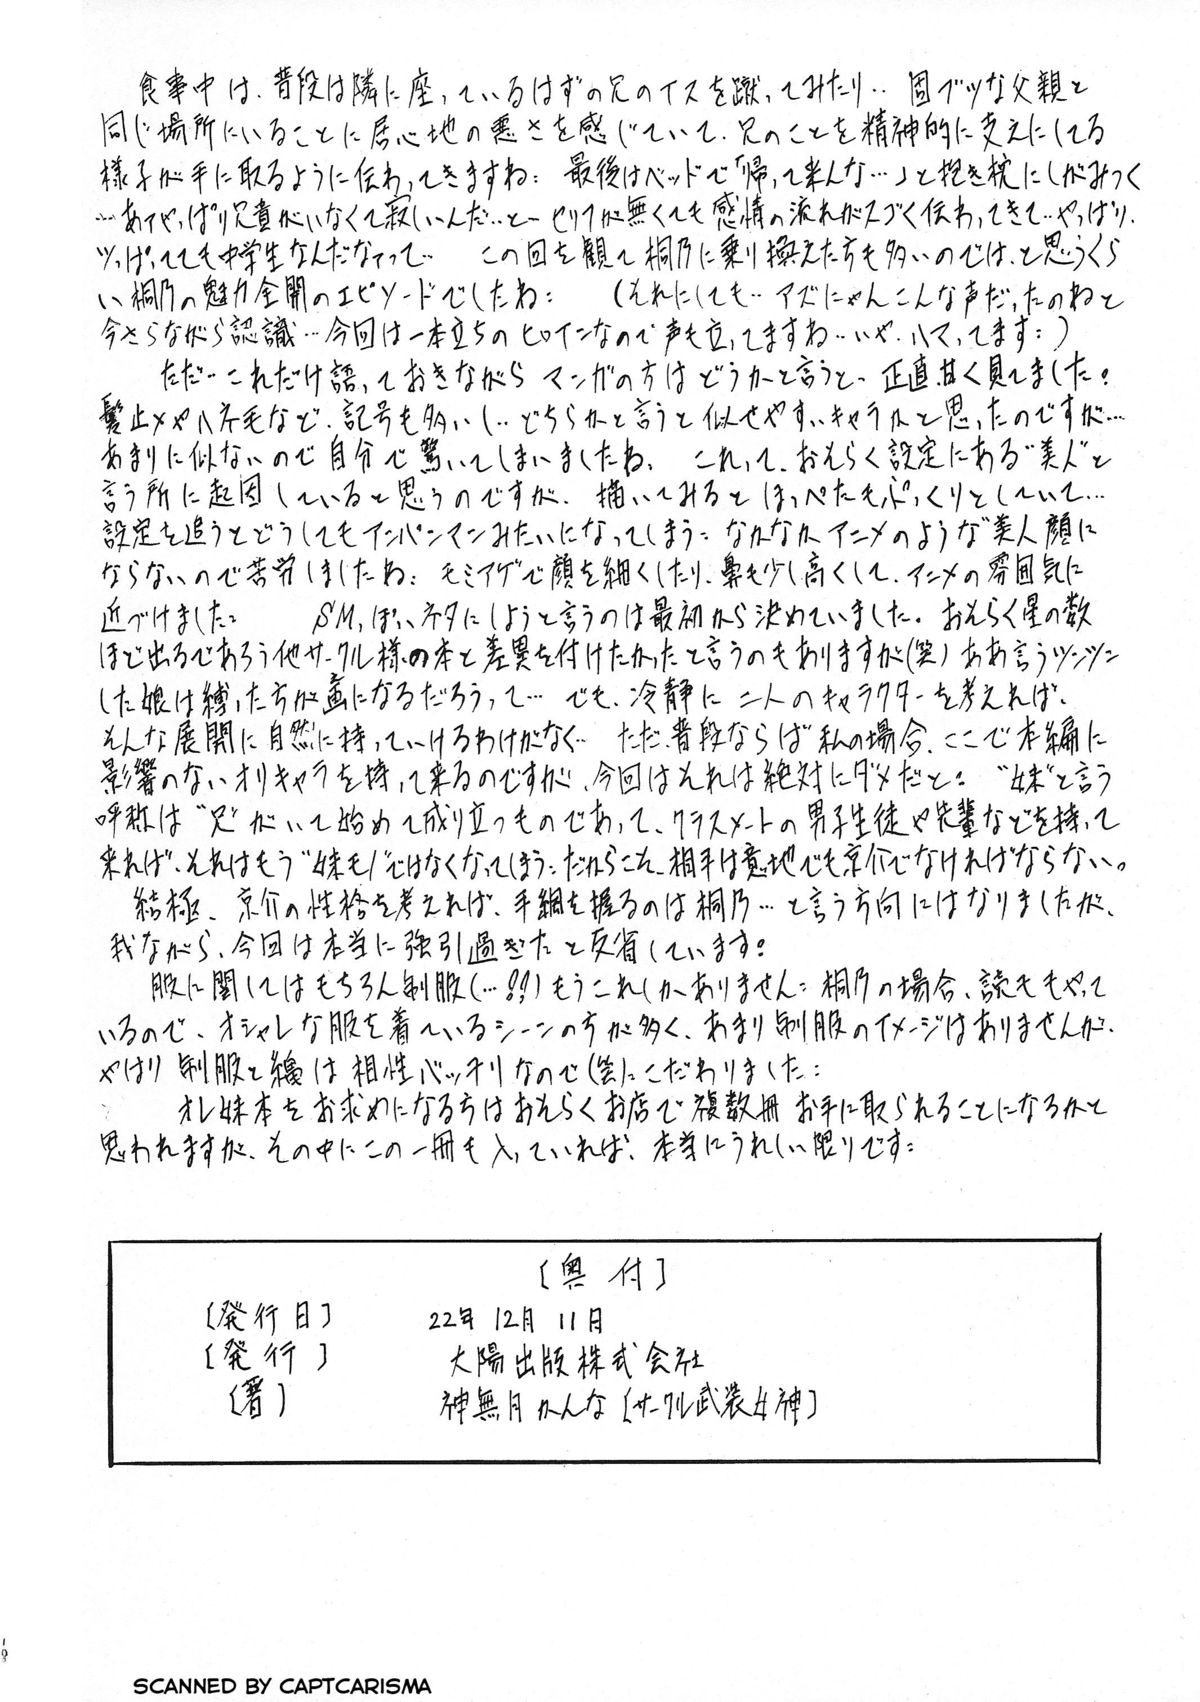 食事中は、普段は隣に座っているはずの兄のイスを蹴ってみたり‥ 固ブツな父親と
同じ場所にいることに居心地の悪さを感じていて、兄のことを精神的に支えにしてる
様子が手に取るように伝わってきますね: 最後はベッドで「帰って来んな…」と抱き枕にしがみつく
…あァやっぱり兄貴がいなくて寂しいんだ‥と- セリフが無くても感情の流れがスゴく伝わってきて‥やっぱり、
ツッぱってても中学生なんだなァって‥ この回を観て桐乃に乗り換えた方も多いのでは、と思うくら
い桐乃の魅力全開のエピソードでしたね: (それにしても‥アズにゃんこんな声だったのねと
今さらながら認識…今回は一本立ちのヒロインなので声も立ってますね…いや、ハマってます:)
ただ‥これだけ語っておきながら マンガの方はどうかと言うと、正直、甘く見てました:
髪止メやハネ毛など、記号も多いし‥どちらかと言うと似せやすいキャラかと思ったのですが…
あまりに似ないので自分で驚いてしまいましたね、 これって、おそらく設定にある“美人”と
言う所に起因していると思うのですが、描いてみるとほっぺたもぷっくりとしていて…
設定を追うとどうしてもアンパンマンみたいになってしまう: なかなかアニメのような“美人顔に
ならないので苦労しましたね: モミアゲで顔を細くしたり、鼻も少し高くして、アニメの雰囲気に
近づけました: SMっぽいネタにしようと言うのは最初から決めていました。おそらく星の数
ほど出るであろう他サークル様の本と差異を付けたかったと言うのもありますが(笑) ああ言うツンツン
した娘は縛った方が画になるだろうって… でも、冷静に二人のキャラクターを考えれば、
そんな展開に自然に持っていけるわけがなく‥ ただ、普段ならば私の場合、ここで本編に
影響のないオリキャラを持って来るのですが、今回はそれは絶対にダメだと: “妹”と言う
呼称は“兄”がいて始めて成り立つものであって、クラスメートの男子生徒や先輩などを持って
来れば、それはもう“妹モノ”ではなくなってしまう: だからこそ、相手は意地でも京介でなければならない。
結極、京介の性格を考えれば、手綱を握るのは桐乃…と言う方向にはなりましたが、
我ながら、今回は本当に強引過ぎたと反省しています:
服に関してはもちろん制服(…!?)もうこれしかありません: 桐乃の場合、読モもやって
いるので、オシャレな服を着ているシーンの方が多く、あまり制服のイメージはありませんが、
やはり制服と縄は相性バッチリなので(笑)こだわりました:
オレ妹本をお求めになる方はおそらくお店で複数冊お手に取られることになるかと
思われますが、その中にこの一冊も入っていれば、本当にうれしい限りです:
[奥付]
[発行日] 22年12月11日
[発行] 大陽出版株式会社
[著] 神無月かんな [サークル武装女神]
SCANNED BY CAPTCARISMA